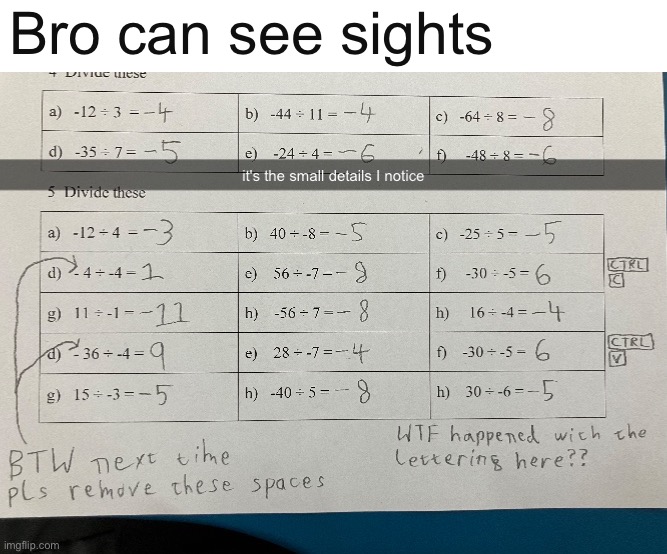 Bro can see sights
4 Divide these
a) -12 ÷ 3 = -4 b) -44 ÷ 11 = -4 c) -64 ÷ 8 = -8
d) -35 ÷ 7 = -5 e) -24 ÷ 4 = -6 f) -48 ÷ 8 = -6
it's the small details I notice
5 Divide these
a) -12 ÷ 4 = -3 b) 40 ÷ -8 = -5 c) -25 ÷ 5 = -5
d) - 4 ÷ -4 = 1 e) 56 ÷ -7 = -8 f) -30 ÷ -5 = 6 CTRL
C
g) 11 ÷ -1 = -11 h) -56 ÷ 7 = -8 h) 16 ÷ -4 = -4
d) - 36 ÷ -4 = 9 e) 28 ÷ -7 = -4 f) -30 ÷ -5 = 6 CTRL
V
g) 15 ÷ -3 = -5 h) -40 ÷ 5 = -8 h) 30 ÷ -6 = -5
BTW next time
pls remove these spaces
WTF happened with the
lettering here??
imgflip.com